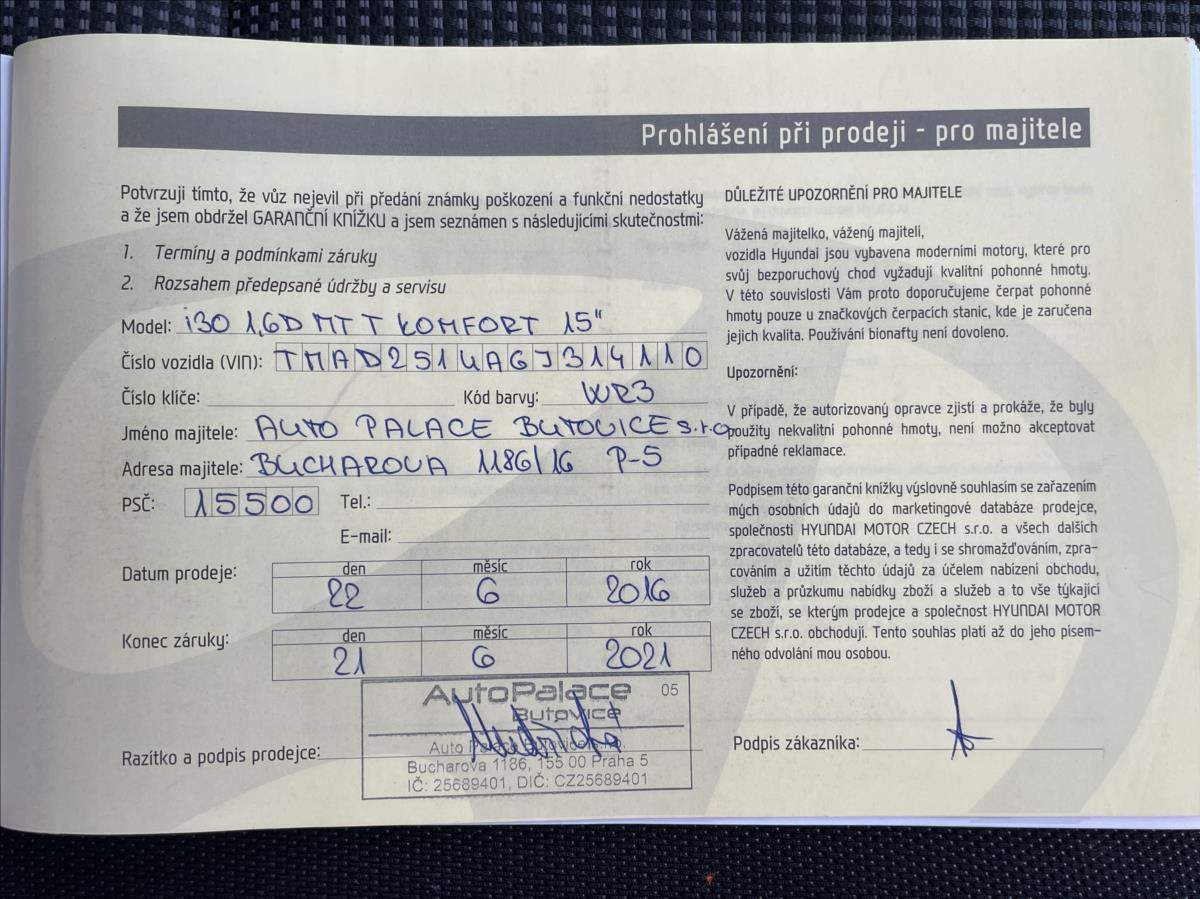 Prohlášení při prodeji - pro majitele
Potvrzuji tímto, že vůz nejevil při předání známky poškození a funkční nedostatky
a že jsem obdržel GARANČNÍ KNÍŽKU a jsem seznámen s následujícími skutečnostmi:
1. Termíny a podmínkami záruky
2. Rozsahem předepsané údržby a servisu
Model: i30 1,6D MT T KOMFORT 15"
Číslo vozidla (VIN): TMAD251UAGJ314110
Číslo klíče: Kód barvy: WR3
Jméno majitele: AUTO PALACE BUTOVICE s.r.o
Adresa majitele: BUCHAROVA 1186/16 P-5
PSČ: 15500 Tel.:
E-mail:
Datum prodeje: den měsíc rok
22 6 2016
Konec záruky: den měsíc rok
21 6 2021
Razítko a podpis prodejce:
AutoPalace 05
Butovice
Auto Palace Butovice s.r.o.
Bucharova 1186, 155 00 Praha 5
IČ: 25689401, DIČ: CZ25689401
DŮLEŽITÉ UPOZORNĚNÍ PRO MAJITELE
Vážená majitelko, vážený majiteli,
vozidla Hyundai jsou vybavena moderními motory, které pro
svůj bezporuchový chod vyžadují kvalitní pohonné hmoty.
V této souvislosti Vám proto doporučujeme čerpat pohonné
hmoty pouze u značkových čerpacích stanic, kde je zaručena
jejich kvalita. Používání bionafty není dovoleno.
Upozornění:
V případě, že autorizovaný opravce zjistí a prokáže, že byly
použity nekvalitní pohonné hmoty, není možno akceptovat
případné reklamace.
Podpisem této garanční knížky výslovně souhlasím se zařazením
mých osobních údajů do marketingové databáze prodejce,
společnosti HYUNDAI MOTOR CZECH s.r.o. a všech dalších
zpracovatelů této databáze, a tedy i se shromažďováním, zpra-
cováním a užitím těchto údajů za účelem nabízení obchodu,
služeb a průzkumu nabídky zboží a služeb a to vše týkající
se zboží, se kterým prodejce a společnost HYUNDAI MOTOR
CZECH s.r.o. obchodují. Tento souhlas platí až do jeho písem-
ného odvolání mou osobou.
Podpis zákazníka: